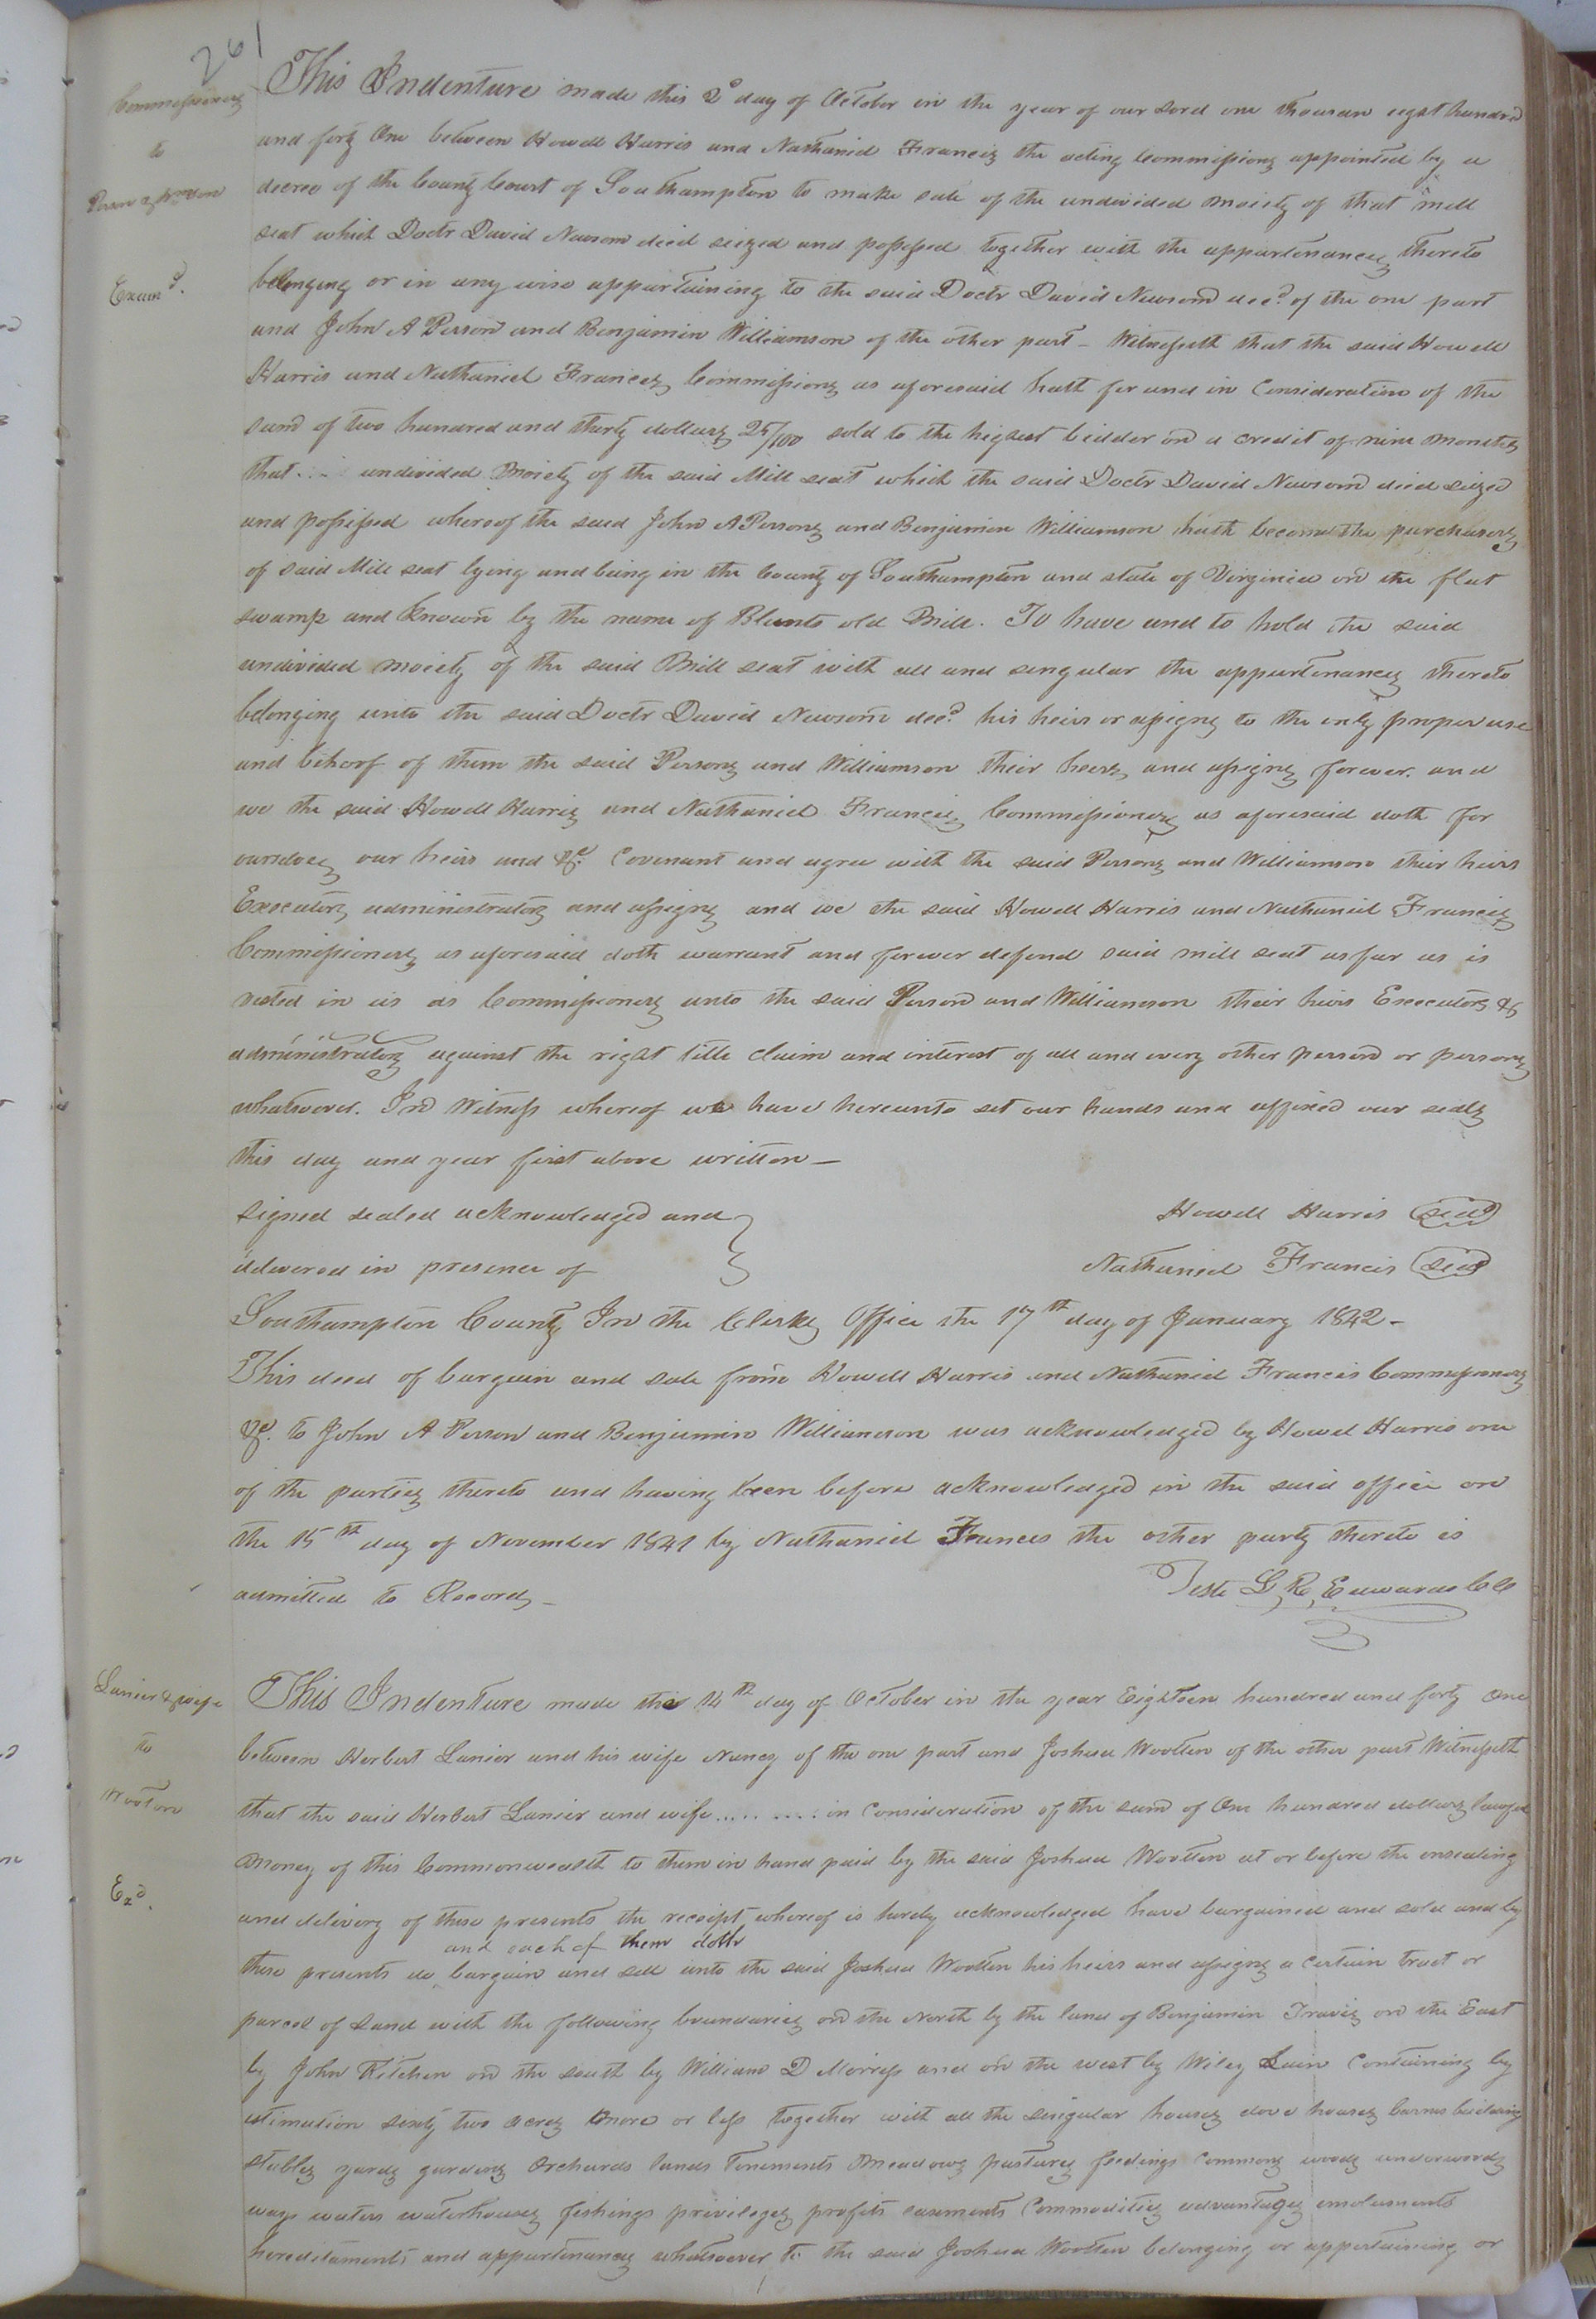 261
Commissioners
to
Person & Wmson
Examd.
This Indenture made this 2d day of October in the year of our Lord one thousan eight hundred
and forty One between Howell Harris and Nathaniel Francis the acting Commissions appointed by a
decree of the County Court of Southampton to make sale of the undivided moiety of that mill
seat which Doctr David Newsom died seized and possessed together with the appurtenances thereto
belonging or in any wise appurtaining to the said Doctr David Newsom decd. of the one part
and John A Person and Benjamin Williamson of the other part - Witnesseth that the said Howell
Harris and Nathaniel Frances Commissions as aforesaid hath for and in Consideration of the
sum of two hundred and thirty dollars 25/100 sold to the highest bidder on a credit of nine months
that .... undivided moiety of the said Mill seat which the said Doctr David Newsom died seized
and possessed whereof the said John A Persons and Benjamin Williamson hath become the purchasers
of said Mill seat lying and being in the County of Southampton and state of Virginia on the flat
swamp and known by the name of Blunts old Mill. To have and to hold the said
undivided moiety of the said Mill seat with all and singular the appurtenances thereto
belonging unto the said Doctr David Newsom decd. his heirs or assigns to the only proper use
and behoof of them the said Persons and Williamson their heirs and assigns forever. and
we the said Howell Harris and Nathaniel Francis Commissioners as aforesaid doth for
ourselves our heirs and &c. Covenant and agree with the said Persons and Williamson their heirs
Executors administrators and assigns and we the said Howell Harris and Nathaniel Francis
Commissioners as aforesaid doth warrant and forever defend said mill seat as far as is
vested in us as Commissioners unto the said Person and Williamson their heirs Executors &
administrators against the right title claim and interest of all and every other person or persons
whatsoever. In Witness whereof we have hereunto set our hands and affixed our seals
this day and year first above written -
signed sealed acknowledged and
delivered in presence of
Howell Harris seal
Nathaniel Francis seal
Southampton County In the Clerks Office the 17th day of January 1842 -
This deed of bargain and sale from Howell Harris and Nathaniel Francis Commissioners
&c. to John A Person and Benjamin Williamson was acknowledged by Howel Harris one
of the parties thereto and having been before acknowledged in the said office on
the 15th day of November 1841 by Nathaniel Frances the other party thereto is
admitted to Record -
Teste L, R, Edwards CC
Lanier & wife
to
Wooten
Exd.
This Indenture made the 14th day of October in the year Eighteen hundred and forty One
between Herbert Lanier and his wife Nancy of the one part and Joshua Wootten of the other part Witnesseth
that the said Herbert Lanier and wife ........ in Consideration of the sum of One hundred dollars lawful
money of this Commonwealth to them in hand paid by the said Joshua Wootten at or before the ensealing
and delivery of these presents the receipt whereof is hereby acknowledged have bargained and sold and by
and each of them doth
these presents do bargain and sell unto the said Joshua Wootten his heirs and assigns a certain tract or
parcel of Land with the following boundaries on the North by the land of Benjamin Travis on the East
by John Kitchen on the south by William D Morriss and on the west by Wiley Lain Containing by
estimation sixty two acres more or less together with all the singular houses dove houses barns buildings
stables yards gardens Orchards lands Tenements Meadows pastures feedings Commons woods underwoods
ways waters waterhouses fishings privileges profits easements Commodities advantages emoluments
hereditaments and appurtenances whatsoever to the said Joshua Wootten belonging or appertaining or